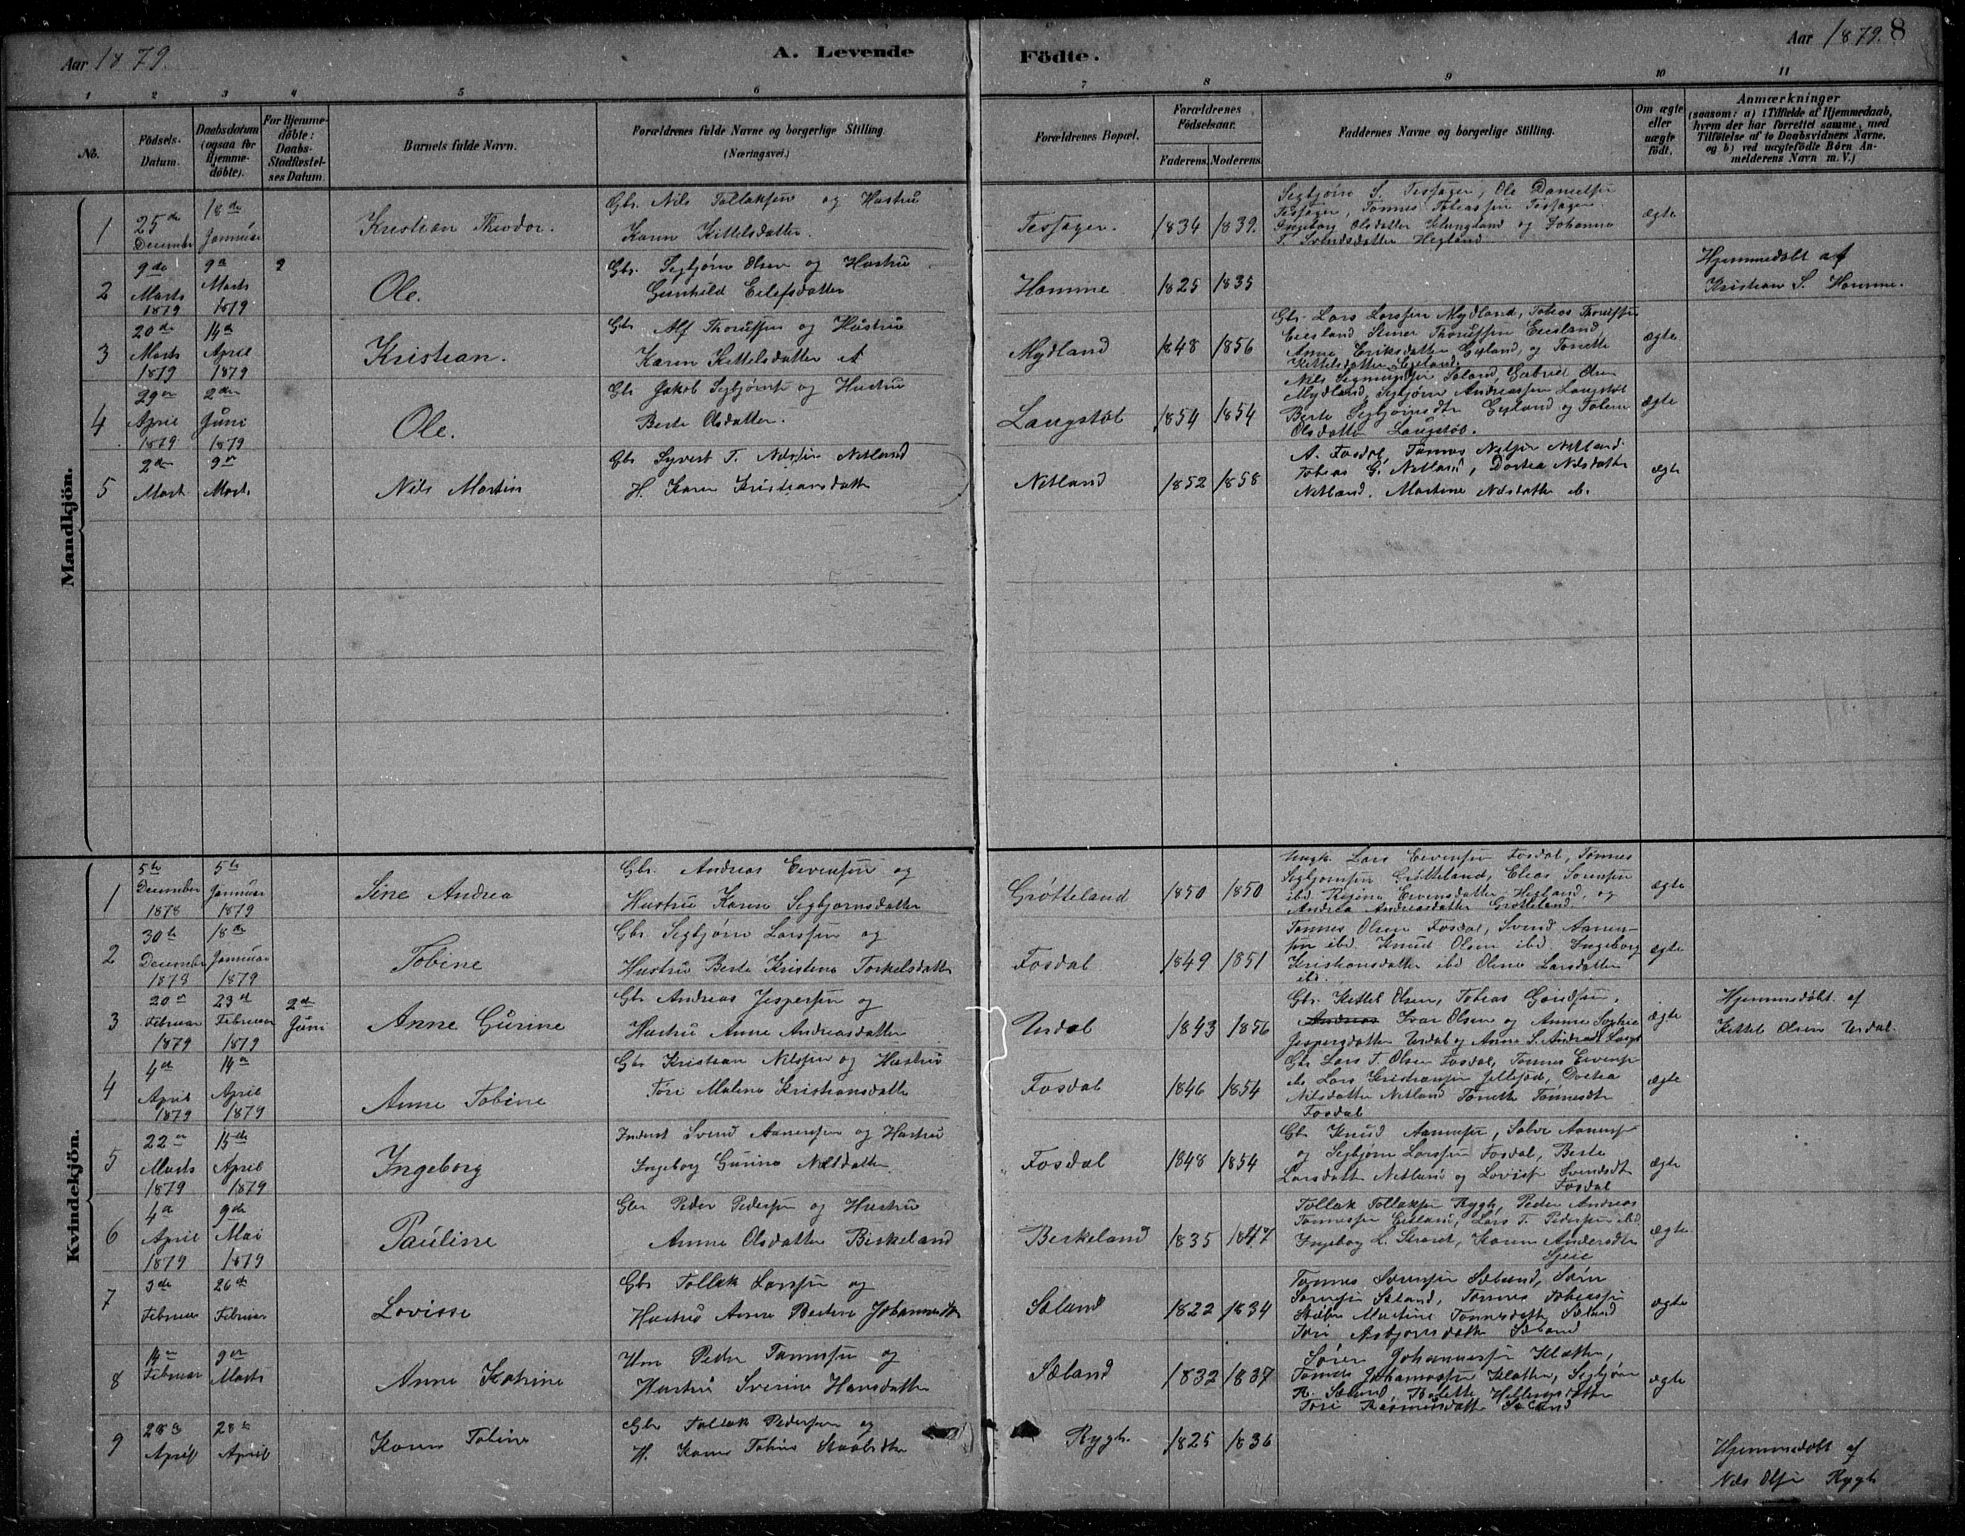 Aar 1879.
A. Levende Födte.
Aar 1879. 8
1 2 3 4 5 6 7 8 9 10 11
No.
Födsels-Datum.
Daabsdatum (ogsaa for Hjemme-døbte).
For Hjemme-døbte: Daabs-Stadfæstel-ses Datum.
Barnets fulde Navn.
Forældrenes fulde Navne og borgerlige Stilling (Næringsvei.)
Forældrenes Bopæl.
Forældrenes Födselsaar.
Faderens. Moderens.
Faddernes Navne og borgerlige Stilling.
Om ægte eller uægte født.
Anmærkninger (saasom: a) i Tilfælde af Hjemmedaab, hvem der har forrettet samme, med Tilföielse af to Daabsvidners Navne, og b) ved uægtefödte Börn Anmelderens Navn m. V.)
Mandkjön.
1 25de December 18de Januar Kristian Theodor. Gbr. Nils Tollaksen og Hustru Karen Kittelsdatter. Tesjager. 1834 1839. Segbjörn S. Tesjager, Ole Danielsen Tesjager, Tönnes Tobiassen Tesjager Ingeborg Olsdatter og Johanna T. Hegland ægte
2 9de Marts 1879 9de Marts 1879 2 Ole. Gbr. Segbjörn Olsen og Hustru Gunhild Eilefsdatter Homme 1825 1835 Hjemmedøbt af Kristian S. Homme.
3 20de Marts 1879 14de April 1879 Kristian. Gbr. Alf Thorussen og Hustru Karen Kittelsdatter Mydland 1848 1856 Gbr. Lars Larssen Mydland, Tobias Thorussen Eiesland Stener Thorussen Eiesland, Anne Eriksdatter Eyland, og Tonette Kittelsdatter ægte
4 29de April 1879 2den Juni 1879 Ole. Gbr Jakob Segbjörnsen og Hustru Berte Olsdatter. Langstøl 1854 1854 Nils Sæland, Gabriel Olsen Mydland, Segbjörn Andreassen Langstøl Berte Segbjörnsdtr Eyland og Olsdatter Langstøl. ægte
5 2de Mart 9de Mart Nils Martin Gbr Syvert T. Nilsen Netland H. Karen Kristiansdatter Netland 1852 1858 A. Fosdal, Tönnes Nilsen Netland Tobias G. Netland, Dortea Nilsdatter Netland. Martine Nilsdatter ib. ægte
Kvindekjön.
1 5te December 1878 5te Januar 1879 Sine Andrea Gbr. Andreas Eivensen og Hustru Karen Segbjornsdatter Grötteland 1850 1850 Ungk. Lars Eivensen Fosdal, Tönnes Segbjornsen Grötteland, Elias Sorensen ibd Regine Eivensdatter Hegland, og Andrea Andreasdatter Grötteland ægte
2 30te December 1878 18de Januar 1879 Tobine Gbr. Segbjörn Larssen og Hustru Berte Kristine Torkelsdatter Fosdal 1849 1851 Tonnes Olsen Fosdal, Svend Aanensen ibd. Knud Olsen ibd. Ingeborg Kristiansdatter ibd Olene Larsdatter ibd. ægte
3 20de Februar 1879 23de Februar 1879 2den Juni Anne Gurine Gbr Andreas Jespersen og Hustru Anne Andreasdatter Urdal 1843 1856 Gbr. Kettel Olsen, Tobias, Andreas Ivar Olsen og Anne Sophie Jespersdatter Urdal og Anne S. ægte Hjemmedøbt af Kettel Olsen Urdal.
4 4de April 1879 14de April 1879 Anne Tobine Gbr Kristian Nilssen og Hustru Tori Malene Kristiansdatter Fosdal 1846 1854 Gbr Lars T. Olsen Fosdal, Tonnes Eivensen ib, Lars Kristiansen, Dortea Nilsdatter Netland Tonette Tönnesdtr Fosdal ægte
5 22de Marts 1879 15de April 1879 Ingeborg Inderst Svend Aanensen og Hustru Ingeborg Gurine Nilsdatter. Fosdal 1848 1854 Gbr Knud Aanensen, Salve Aanensen og Segbjörn Larssen Fosdal, Berte Larsdatter Netland og Lovise Svendsdtr Fosdal ægte
6 4de April 1879 9de Mai 1879 Pauline Gbr Peder Pedersen og Hustru Anne Olsdatter Birkeland Berkeland 1835 1847 Tollak Tollaksen Rygh, Peder Andreas Tönnessen Eieland, Lars T. Pedersen ibd. Ingeborg L., Karen Andersdtr ægte
7 3de Februar 26de Februar Lovisse Gbr Tollak Larssen og Hustru Anne Bertine Johannesdtr Sæland 1822 1834 Tonnes Sörensen Sæland, Sörn Sörensen Sæland, Tönnes Tobiassen Martine Tonnesdatter Sæland Tori Asbjornsdatter Sæland ægte
8 14de Februar 9de Marts Anne Katrine Hm Peder Tönnesen og Hustru Sverine Hansdatter Sæland 1832 1837 Sören Johannessen Klætten, Tonnes Johannessen Klætten, Segbjörn R. Sæland, Tori Rasmusdatter Sæland ægte
9 28de April 28de April Karen Tobine Gbr Tollak Pedersen og H. Karen Tobine Rygh. 1825 1836 Hjemmedøbt af Nils Olsen Rygh